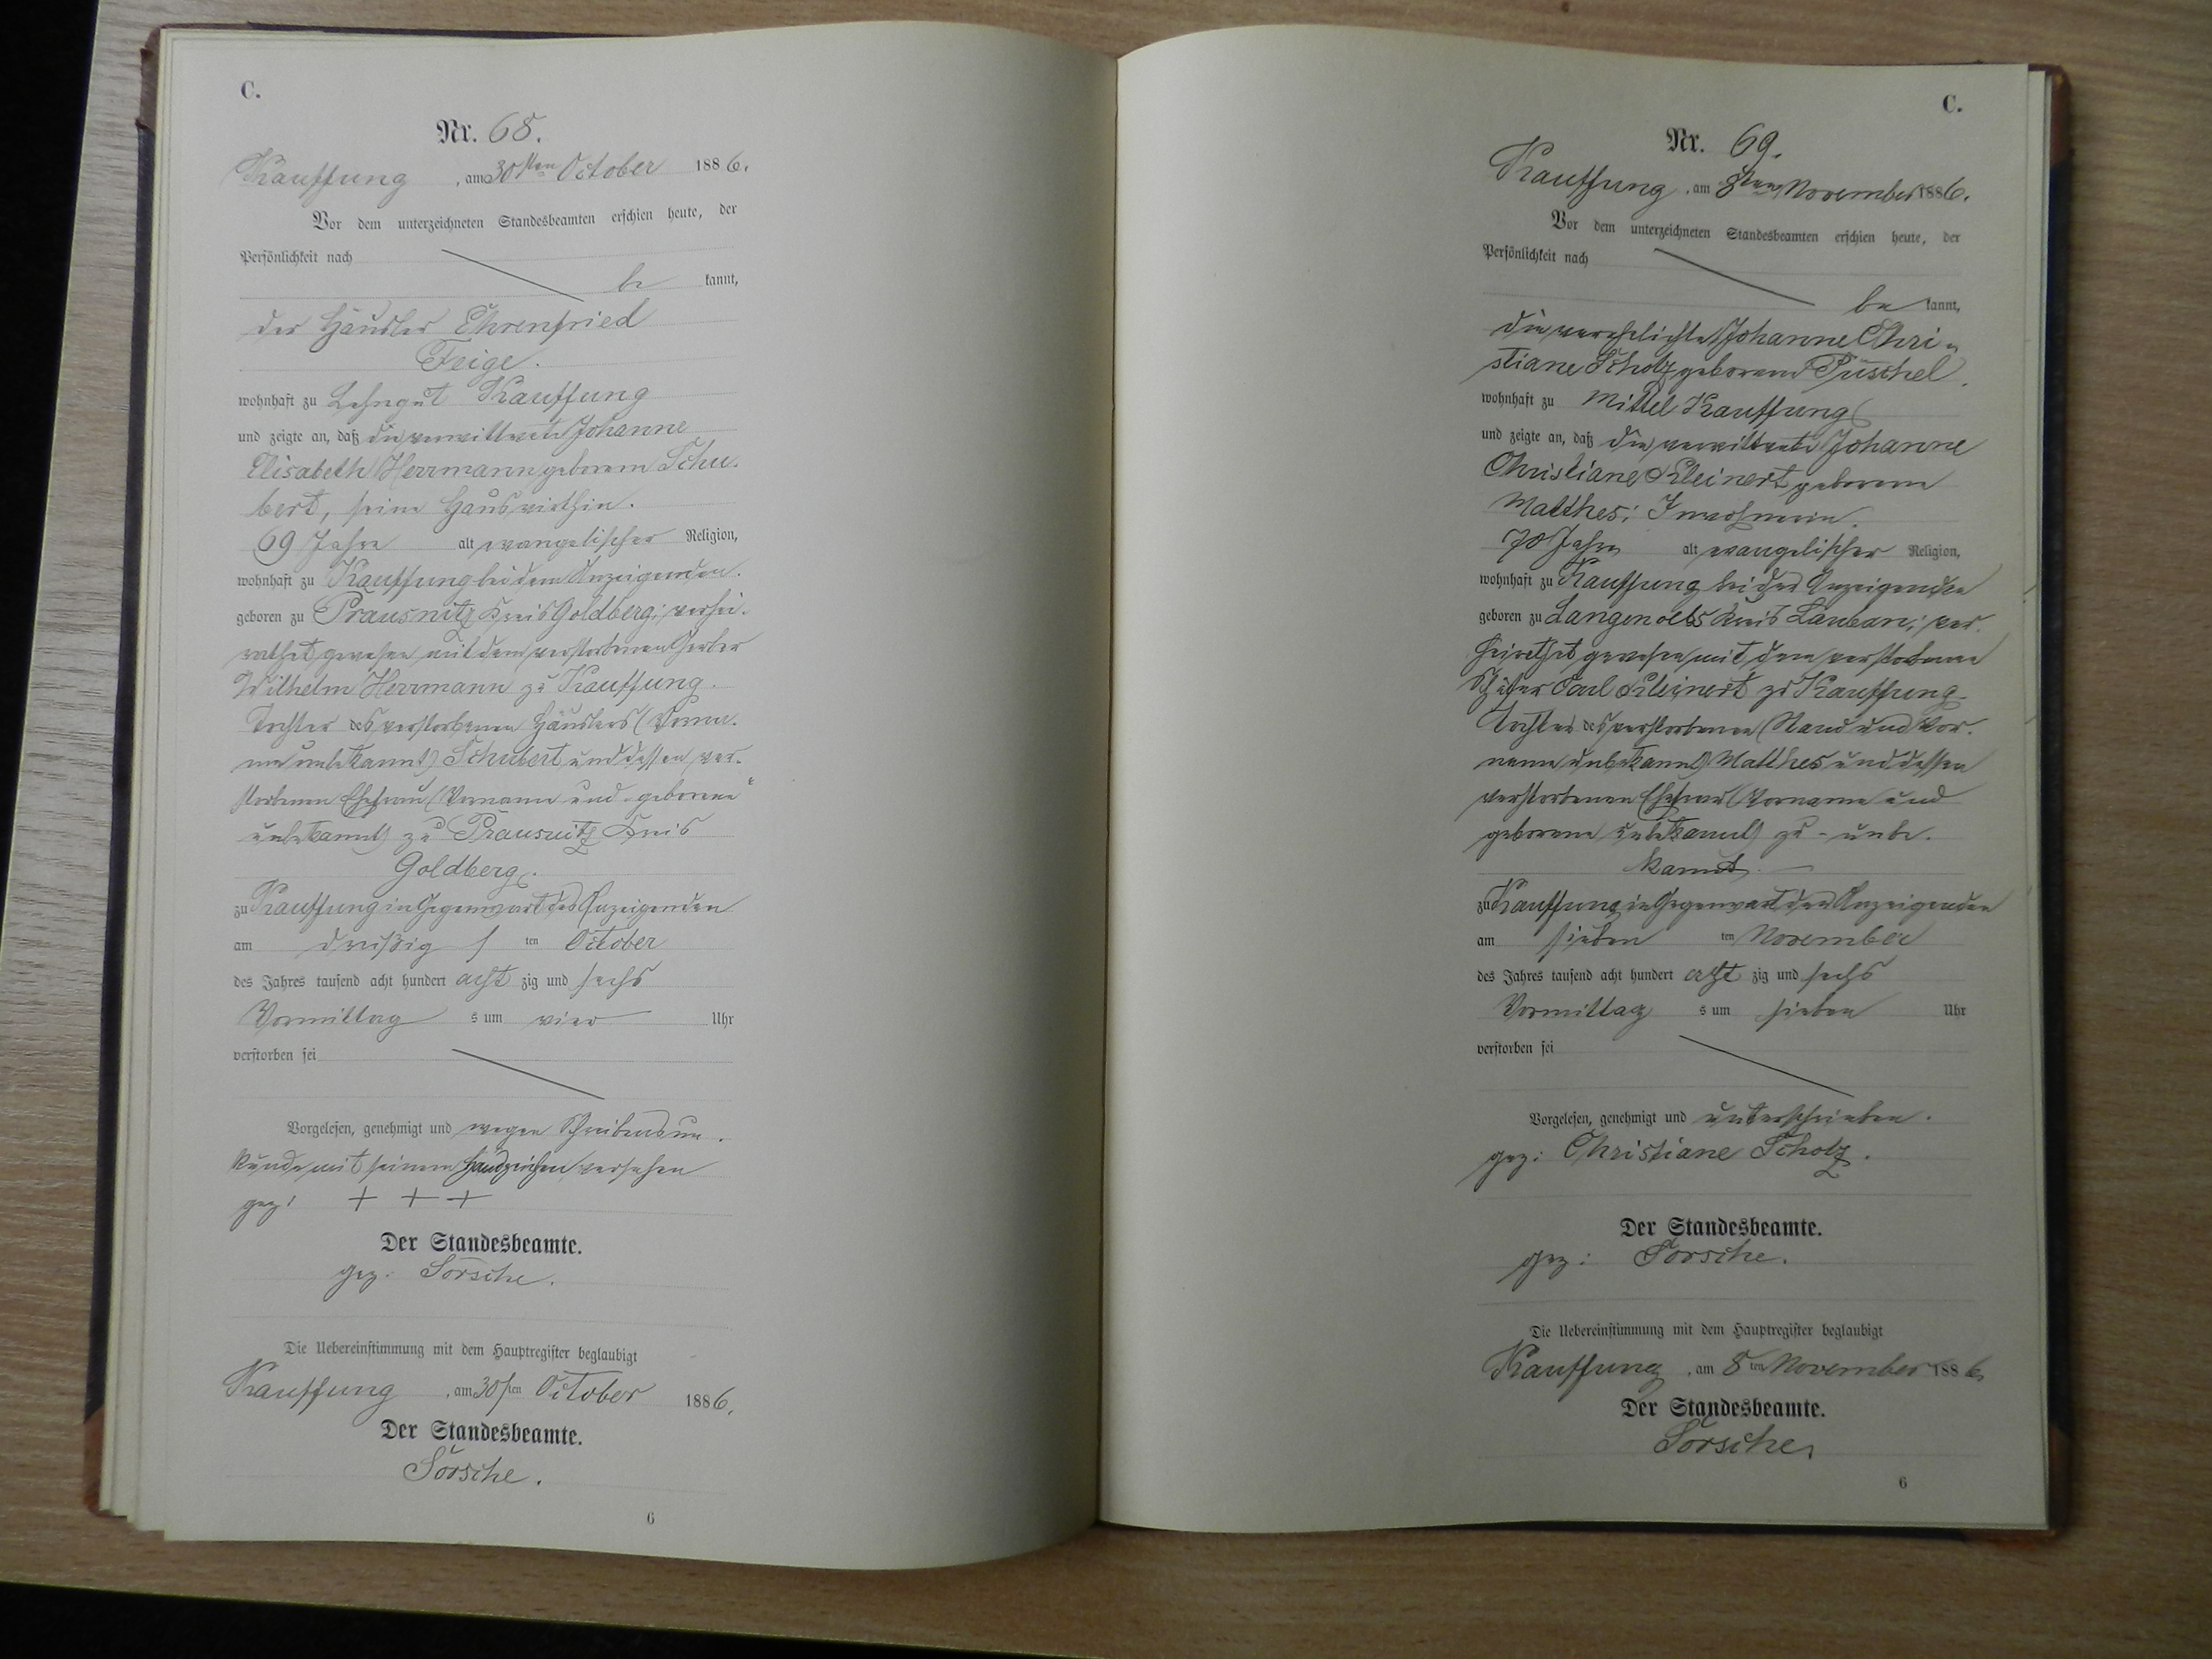 C.
Nr. 68.
Kauffung, am 30sten October 1886.
Vor dem unterzeichneten Standesbeamten erschien heute, der
Persönlichkeit nach
be kannt,
der Häusler Ehrenfried
Feige.
wohnhaft zu Lehngut Kauffung
und zeigte an, daß die verwittwete Johanne
Elisabeth Herrmann geborene Schu-
bert, seine Hauswirthin.
69 Jahre alt evangelischer Religion,
wohnhaft zu Kauffung bei dem Anzeigenden.
geboren zu Prausnitz Kreis Goldberg; verhei-
rathet gewesen mit dem verstorbenen
Wilhelm Herrmann zu Kauffung.
Tochter des verstorbenen Häuslers (Vorna-
me unbekannt) Schubert und dessen ver-
storbenen Ehefrau (Vorname und "geborene"
unbekannt) zu Prausnitz Kreis
Goldberg.
zu Kauffung in Gegenwart des Anzeigenden
am dreißig s ten October
des Jahres tausend acht hundert acht zig und sechs
Vormittag s um vier Uhr
verstorben sei
Vorgelesen, genehmigt und wegen Schreibensun-
kunde mit seinem Handzeichen versehen
gez: + + +
Der Standesbeamte.
gez: Sorsche.
Die Uebereinstimmung mit dem Hauptregister beglaubigt
Kauffung, am 30sten October 1886.
Der Standesbeamte.
Sorsche.
6
C.
Nr. 69.
Kauffung, am 8ten November 1886.
Vor dem unterzeichneten Standesbeamten erschien heute, der
Persönlichkeit nach
be kannt,
die verehelichte Johanne Chri-
stiane Scholz geborene Püschel.
wohnhaft zu Mittel Kauffung
und zeigte an, daß die verwittwete Johanne
Christiane Kleinert geborene
Matthes; Inwohnerin.
70 Jahre alt evangelischer Religion,
wohnhaft zu Kauffung bei der Anzeigenden
geboren zu Langenoels Kreis Lauban; ver-
heirathet gewesen mit dem verstorbenen
Schäfer Carl Kleinert zu Kauffung.
Tochter des verstorbenen (Stand und Vor-
name unbekannt) Matthes und dessen
verstorbenen Ehefrau (Vorname und
geborene unbekannt) zu - unbe-
kannt.
zu Kauffung in Gegenwart der Anzeigenden
am sieben ten November
des Jahres tausend acht hundert acht zig und sechs
Vormittag s um sieben Uhr
verstorben sei
Vorgelesen, genehmigt und unterschrieben.
gez: Christiane Scholz.
Der Standesbeamte.
gez: Sorsche.
Die Uebereinstimmung mit dem Hauptregister beglaubigt
Kauffung, am 8ten November 1886.
Der Standesbeamte.
Sorsche.
6